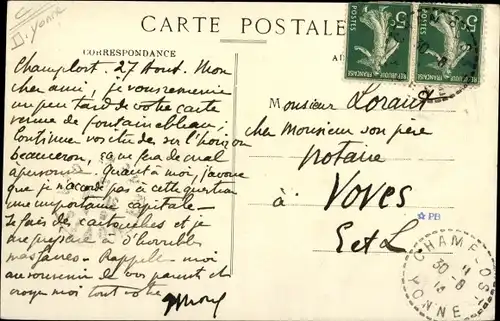 D. Yonne
CARTE POSTALE
CORRESPONDANCE
5 POSTES REPUBLIQUE FRANÇAISE
5 POSTES REPUBLIQUE FRANÇAISE
Champlost. 27 Aout. Mon
cher ami, je vous remercie
un peu tard de votre carte
venue de fontainebleau;
Continue vos études sur l'horizon
beauceron, ça ne fera de mal
à personne. Quant à moi, j'avoue
que je n'accorde pas à cette question
une importante capitale -
Je fais de cartouches et je
me prépare à d'horribles
massacres - Rappelle moi
au souvenir de vos parents et
croyez moi tout votre
Monsieur Lorant
chez Monsieur son père
notaire
à Voves
E et L
☆PB
CHAMPLOST
30 - 8
YONNE